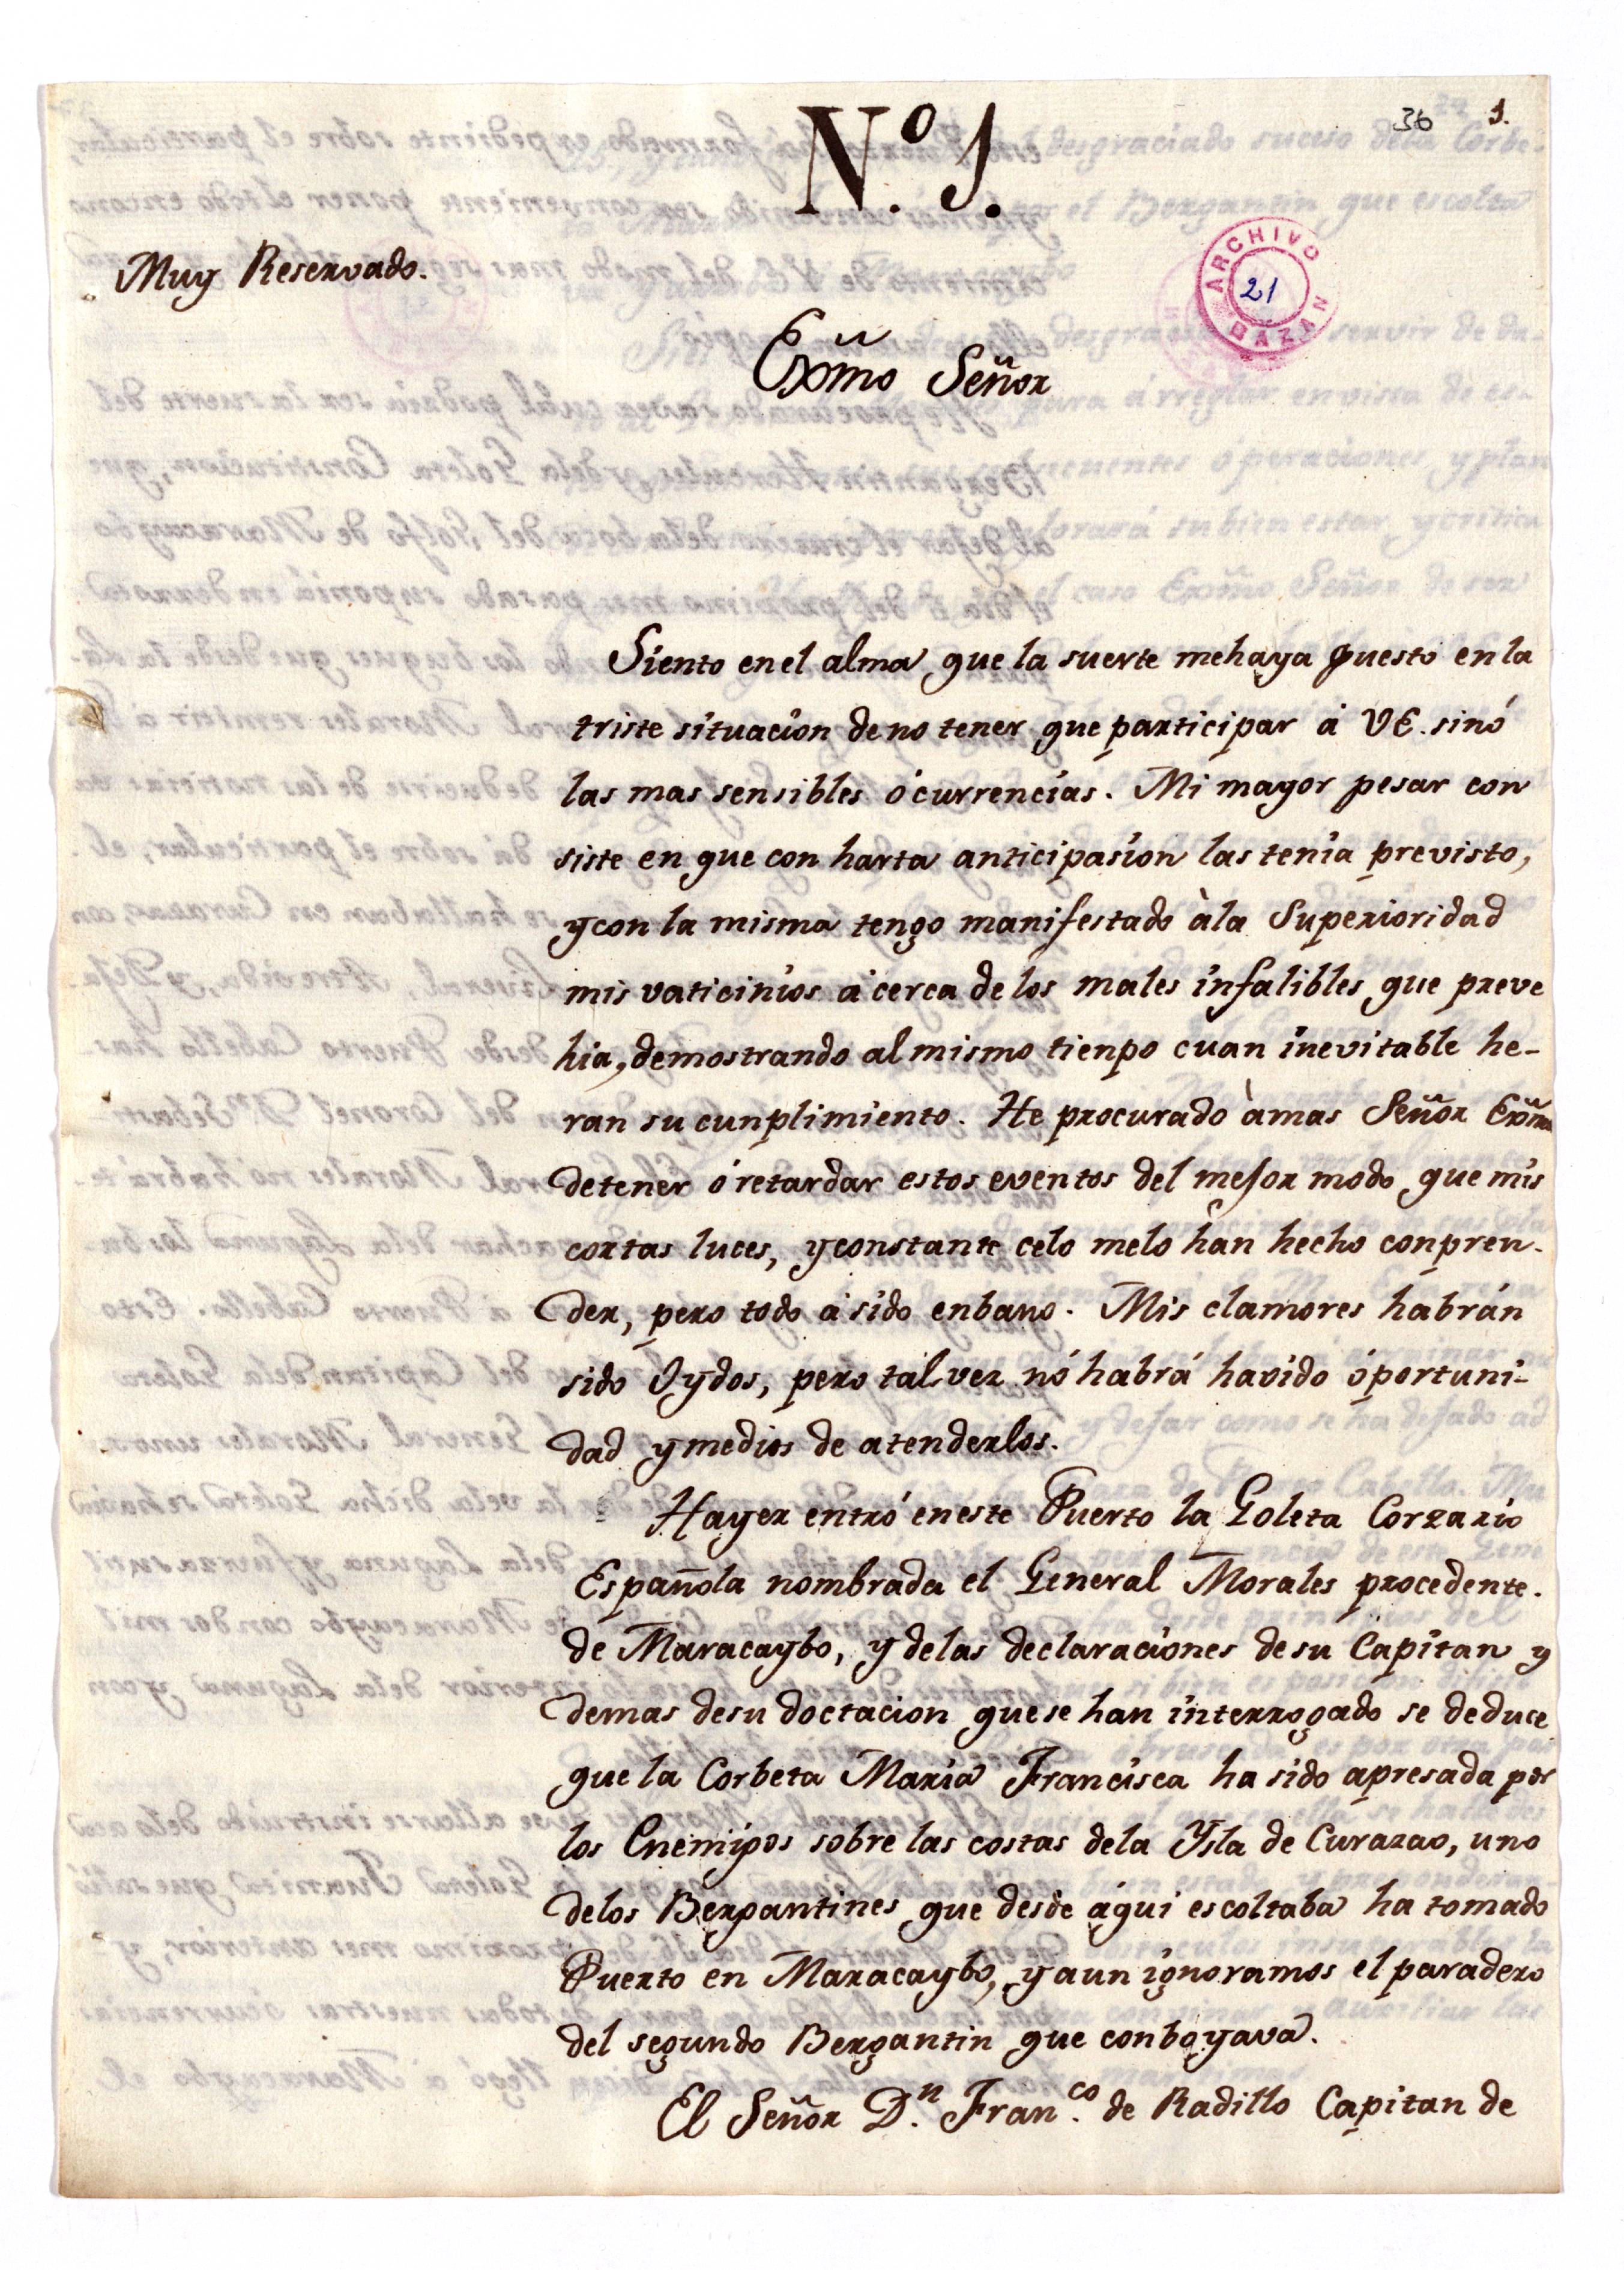 36 1.
Nº 1.
Muy Reservado.
ARCHIVO BAZAN
21
Exm̃o Señor
Siento en el alma que la suerte me haya puesto en la
triste situacion de no tener que participar á VE. sinó
las mas sensibles ócurrencias. Mi mayor pesar con
siste en que con harta anticipasion las tenia previsto,
y con la misma tengo manifestado àla Superioridad
mis vaticinios ácerca de los males infalibles que preve
hia, demostrando al mismo tienpo cuan inevitable he-
ran su cunplimiento. He procurado àmas Señor Exm̃o
detener ó retardar estos eventos del mejor modo que mis
cortas luces, y constante celo melo hàn hecho conpren-
der, pero todo á sido enbano. Mis clamores habrán
sido Oydos, pero tal vez nó habrá havido óportuni-
dad y medios de atenderlos.
Hayer entró en este Puerto la Goleta Corzario
Española nombrada el General Morales procedente.
de Maracaybo, y delas declaraciones de su Capitan y
demas desu doctacion que se han interrogado se deduce
que la Corbeta Maria Francisca ha sido apresada por
los Enemigos sobre las costas dela Ysla de Curazao, uno
delos Bergantines que desde áqui escoltaba ha tomado
Puerto en Maracaybo, y aun ignoramos el paradero
del segundo Bergantin que conboyava.
El Señor D.n Fran.co de Radillo Capitan de